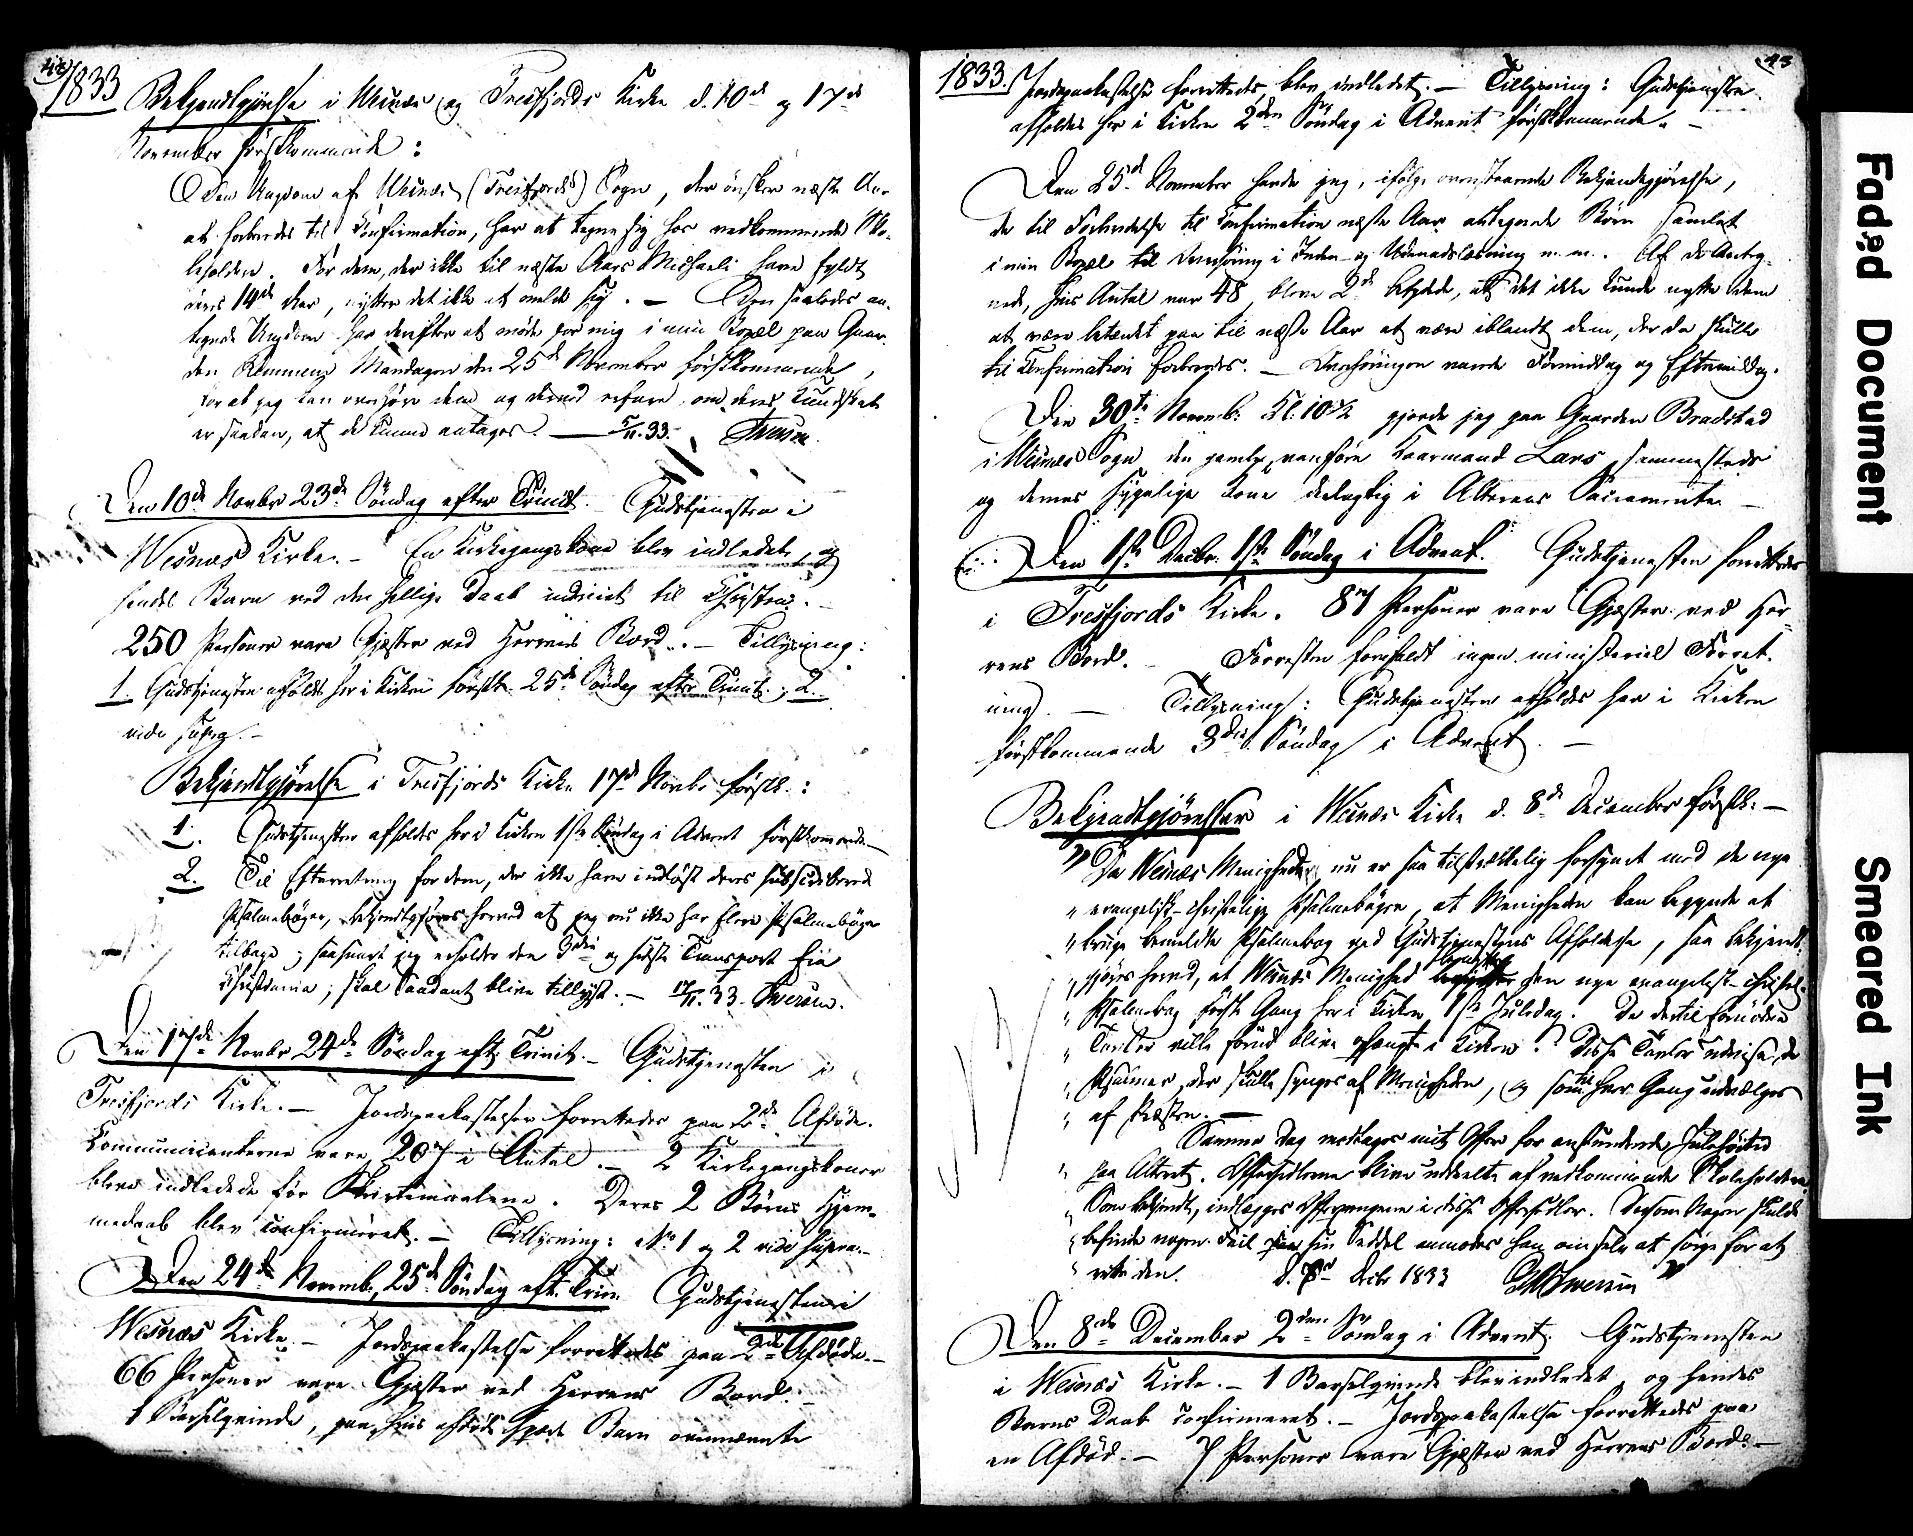 42
1833 Bekjendtgjørelse i Wesnæs og Tresfjords Kirke d. 10de og 17de
November førstkommende :
Den Ungdom af Wesnæs (Tresfjords) Sogn, der ønsker næste Aar
at forberedes til Confirmation, har at tegne sig hos vedkommende Sko-
leholder. For dem, der ikke til næste Aars Michaeli have fyldt
deres 14de Aar, nytter det ikke at melde sig. — Den saaledes an-
tegnede Ungdom har derefter at møde for mig i min Bopæl paa Gaar-
den Remmem Mandagen den 25de November førstkommende,
for at jeg kan overhøre dem og derved erfare, om deres Kundskab
er saadan, at de kunne antages. — 5/11. 33. Iversen.
Den 10de Novbr 23de Søndag efter Trinit. Gudstjenesten i
Wesnæs Kirke. — En Kirkegangskone blev indledet, og
hendes Barn ved den hellige Daab indviet til Christen. —
250 Personer vare Gjæster ved Herrens Bord. — Tillysning:
1. Gudstjenesten afholdes her i Kirken førstk. 25de Søndag efter Trinit.; 2.
vide supra. —
Bekjendtgjørelse i Tresfjords Kirke 17de Novbr førstk. :
1. Gudstjenesten afholdes her i Kirken 1ste Søndag i Advent førstkommende —
2. Til Efterretning for dem, der ikke have indløst deres subscriberede
Psalmebøger, bekjendtgjøres herved at jeg nu ikke har flere Psalmebøger
tilbage; saasnart jeg erholder den 3die og sidste Transport fra
Christiania, skal Saadant blive tillyst. — 17/11. 33. Iversen.
Den 17de Novbr 24de Søndag eft. Trinit. — Gudstjenesten i
Tresfjords Kirke. — Jordspaakastelse forrettedes paa 2de Afdøde.
Communicanterne vare 207 i Antal. — 2 Kirkegangskoner
bleve indledede før Skriftemaalene. Deres 2 Børns Hjem-
medaab blev confirmeret. — Tillysning: No 1 og 2 vide supra. —
Den 24de Novemb., 25de Søndag eft. Trin. Gudstjenesten i
Wesnæs Kirke. — Jordspaakastelse forrettedes paa 2de Afdøde. —
66 Personer vare Gjæster ved Herrens Bord. —
1 Barselqvinde, paa hvis afdøde spæde Barn ovennævnte
43
1833. Jordspaakastelse forrettedes, blev indledet. — Tillysning: Gudstjenesten
afholdes her i Kirken 2den Søndag i Advent førstkommende. —
Den 25de November havde jeg, ifølge ovenstaaende Bekjendtgjørelse,
de til Forberedelse til Confirmation næste Aar antegnede Børn samlet
i min Bopæl til Overhøring i Inden- og Udenadslæsning m. m. Af de Anteg-
nede, hvis Antal var 48, bleve 2de betydede, at det ikke kunde nytte dem
at være betænkt paa til næste Aar at være iblandt dem, der da skulle
til Confirmation forberedes. — Overhøringen varede Formiddag og Eftermiddag.
Den 30te Novemb: Kl. 10½ gjorde jeg paa Gaarden Bradstad
i Wesnæs Sogn den gamle, vanføre Kaarmand Lars sammesteds
og dennes sygelige Kone deelagtig i Alterens Sacramente. —
Den 1ste Decbr. 1ste Søndag i Advent. Gudstjenesten forrettedes
i Tresfjords Kirke. 87 Personer vare Gjæster ved Her-
rens Bord. — Forresten forefaldt ingen ministeriel Forret-
ning. — Tillysning: Gudstjenesten afholdes her i Kirken
førstkommende 3die Søndag i Advent. —
Bekjendtgjørelser i Wesnæs Kirke d. 8de December førstk. —
„ Da Wesnæs Menighed nu er saa tilstrækkelig forsynet med de nye
„ evangelisk-christelige Psalmebøger, at Menigheden kan begynde at
„ bruge bemeldte Psalmebog ved Gudstjenestens Afholdelse, saa bekjendt-
„ gjøres herved, at Wesnæs Menighed benytter den nye evangelisk-christel.
„ Psalmebog første Gang her i Kirken 1ste Juledag. De dertil fornødne
„ Tavler ville forud blive ophængte i Kirken. Disse Tavler udvise de
„ Psalmer, der skulle synges af Menigheden, og som til hver Gang udvælges
„ af Præsten. —
Samme Dag modtages mit Offer for anstundende Julehøitid
„ paa Alteret. Offersedlerne blive uddeelte af vedkommende Skoleholdere.
„ Som bekjendt, indlægges Offerpengene i disse Offersedler. Dersom Nogen skulde
„ befinde nogen Feil paa sin Seddel anmodes han om selv at sørge for at
„ rette den. d. 7de Decbr 1833 Iversen
Den 8de December 2den Søndag i Advent. Gudstjenesten
i Wesnæs Kirke. — 1 Barselqvinde blev indledet, og hendes
Barns Daab confirmeret. — Jordspaakastelse forrettedes paa
en Afdød. — 7 Personer vare Gjæster ved Herrens Bord. —
Faded Document
Smeared Ink